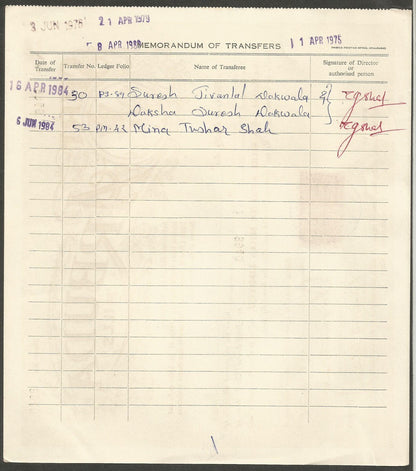 3 JUN 1976
21 APR 1979
8 APR 1980
MEMORANDUM OF TRANSFERS
11 APR 1975
Date of Transfer
Transfer No.
Ledger Folio
Name of Transferee
Signature of Director or authorised person
16 APR 1984 50 Suresh Jivanlal Dakwala &
Daksha Suresh Dakwala
6 JUN 1984 53 Mina Tushar Shah